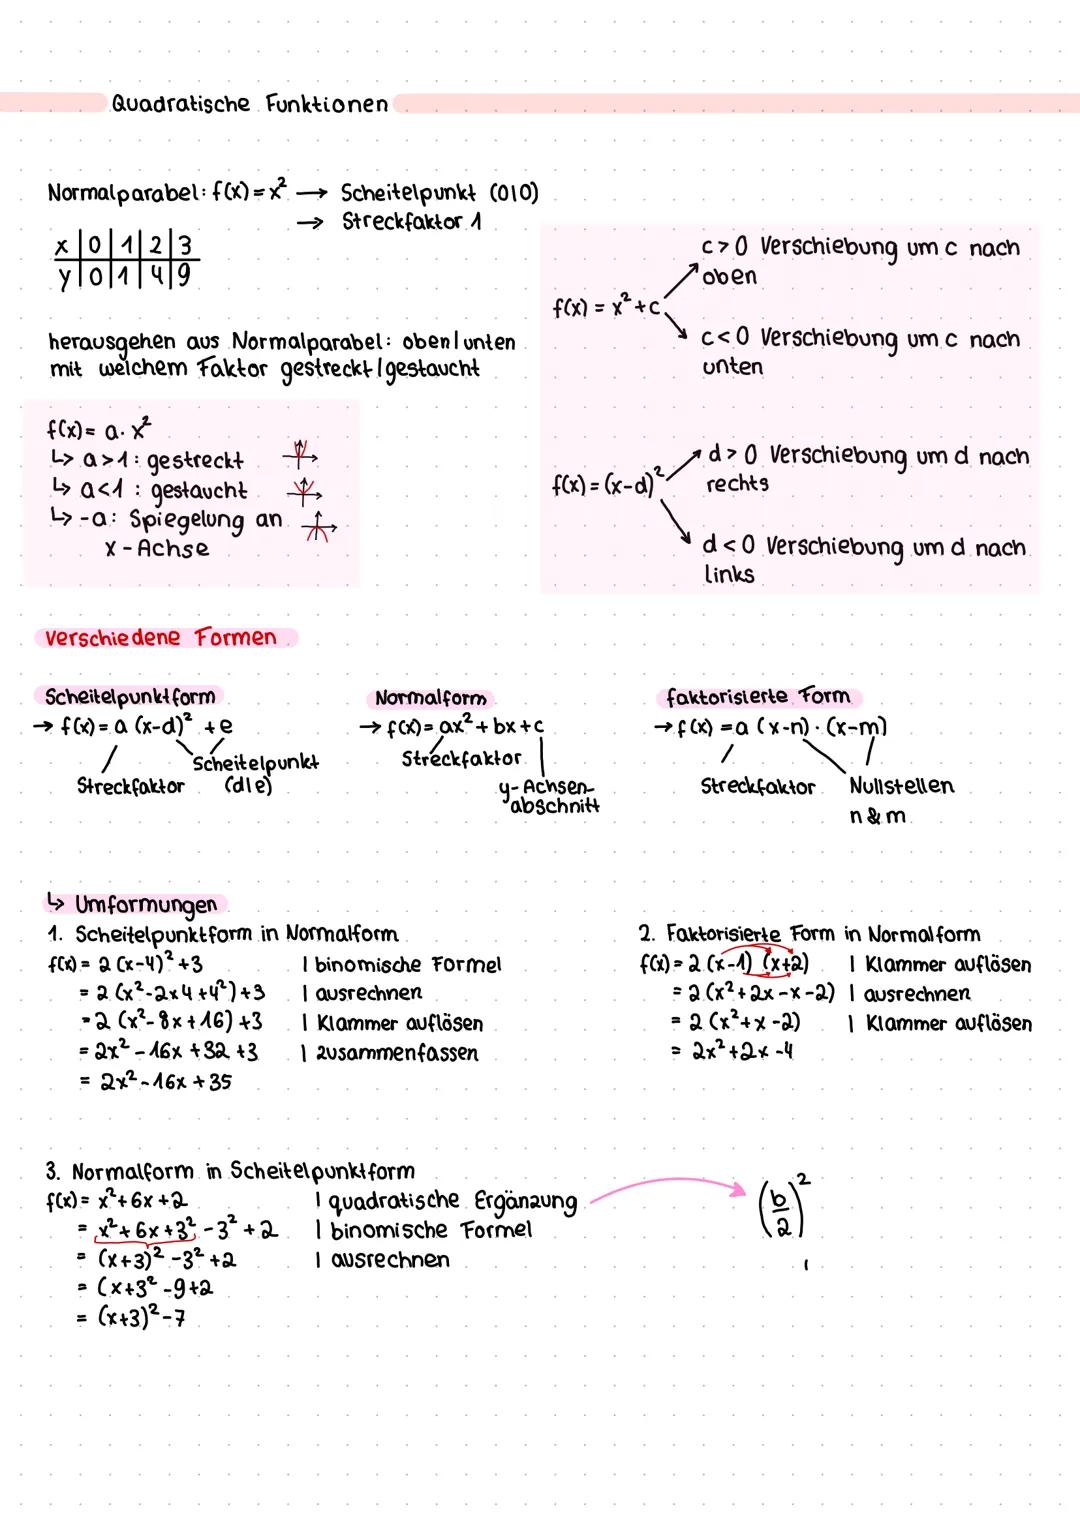 Quadratische Funktionen
Normalparabel: f(x) = x² → Scheitelpunkt (0|0)
→ Streckfaktor 1
x | 0 | 1 | 2 | 3
y | 0 | 1 | 4 | 9
herausgehen aus Normalparabel: oben/unten
mit welchem Faktor gestreckt/gestaucht
f(x) = a · x²
↳ a>1 : gestreckt
↳ a<1 : gestaucht
↳ -a: Spiegelung an
x-Achse
c > 0 Verschiebung um c nach
oben
f(x) = x² + c
c < 0 Verschiebung um c nach
unten
d > 0 Verschiebung um d nach
rechts
f(x) = (x-d)²
d < 0 Verschiebung um d nach
links
Verschiedene Formen
Scheitelpunktform
→ f(x) = a (x-d)² + e
Scheitelpunkt
(d|e)
Streckfaktor
Normalform
→ f(x) = ax² + bx + c
Streckfaktor
y-Achsen-
abschnitt
faktorisierte Form
→ f(x) = a (x-n) · (x-m)
Streckfaktor
Nullstellen
n & m
↳ Umformungen
1. Scheitelpunktform in Normalform
f(x) = 2 (x-4)² + 3 | binomische Formel
= 2 (x²-2x4+4²)+3 | ausrechnen
= 2 (x²-8x+16)+3 | Klammer auflösen
= 2x² - 16x + 32 + 3 | zusammenfassen
= 2x² - 16x + 35
2. Faktorisierte Form in Normalform
f(x) = 2 (x-1) (x+2) | Klammer auflösen
= 2 (x²+2x-x-2) | ausrechnen
= 2 (x²+x-2) | Klammer auflösen
= 2x²+2x-4
3. Normalform in Scheitelpunktform
f(x) = x²+6x+2 | quadratische Ergänzung → (b/2)²
= x²+6x+3² - 3² + 2 | binomische Formel
= (x+3)² - 3² + 2 | ausrechnen
= (x+3² - 9+2
= (x+3)² - 7